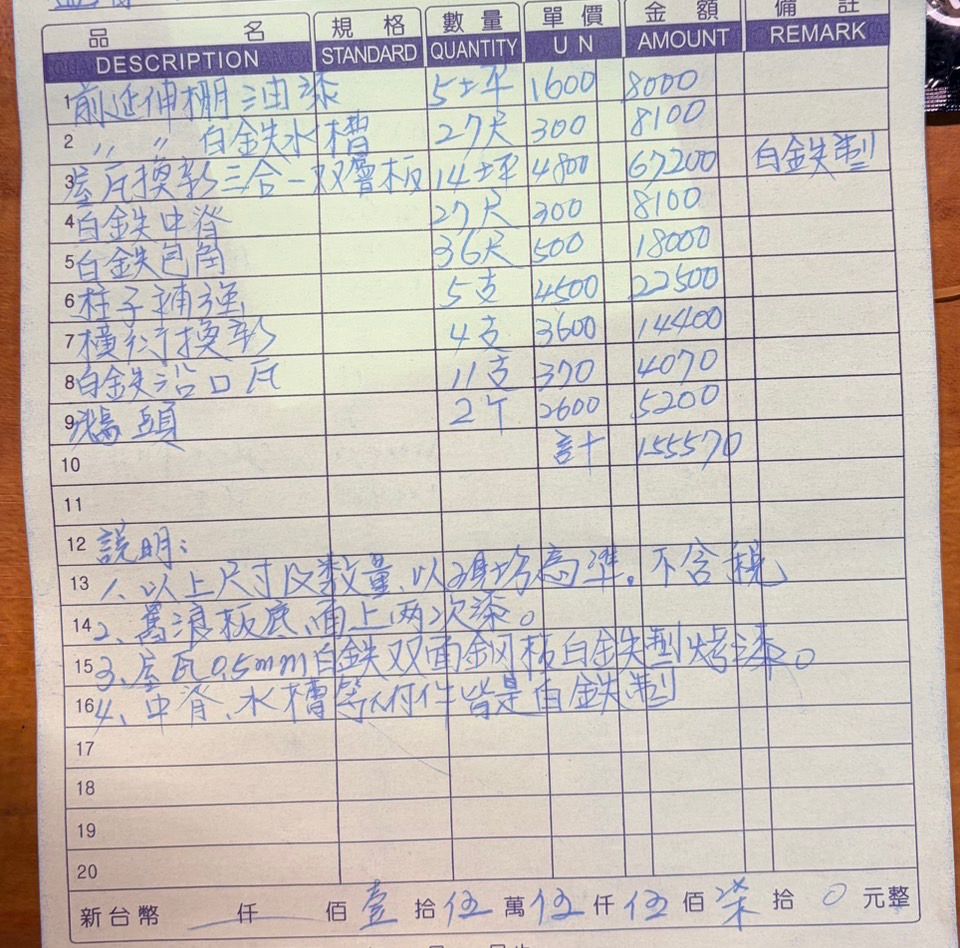 品名 規格 數量 單價 金額 備註
DESCRIPTION STANDARD QUANTITY U N AMOUNT REMARK
1 前延伸棚油漆 5坪 1600 8000
2 〃 〃 白鉄水槽 27尺 300 8100
3 屋瓦換新三合一双層板 14坪 4800 67200 白鉄製
4 白鉄中脊 27尺 300 8100
5 白鉄包角 36尺 500 18000
6 柱子補強 5支 4500 22500
7 橫衍換新 4支 3600 14400
8 白鉄沿口瓦 11支 370 4070
9 鵝頭 2个 2600 5200
10 計 155570
11
12 說明:
13 1、以上尺寸及数量、以現場為準。不含稅
14 2、舊浪板底、面上兩次漆。
15 3、屋瓦0.5mm白鉄双面鋼板白鉄製烤漆。
16 4、中脊、水槽等附件皆是白鉄製
17
18
19
20
新台幣 仟 佰 壹 拾 伍 萬 伍 仟 伍 佰 柒 拾 0 元整